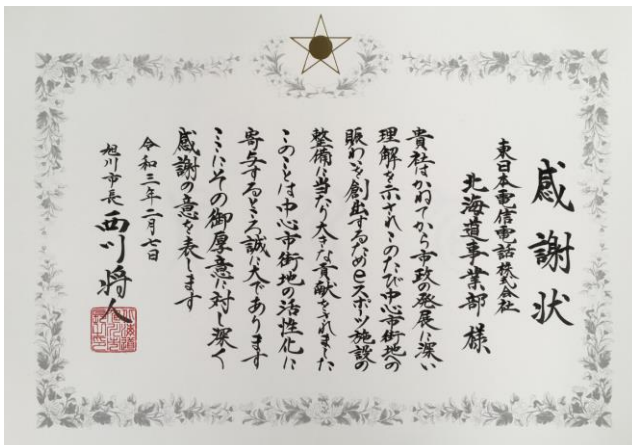 感謝状
東日本電信電話株式会社
北海道事業部 様
貴社はかねてから市政の発展に深い
理解を示されこのたび中心市街地の
賑わいを創出するためeスポーツ施設の
整備に当たり大きな貢献をされました
このことは中心市街地の活性化に
寄与するところ誠に大であります
ここにその御厚意に対し深く
感謝の意を表します
令和三年二月七日
旭川市長 西川将人